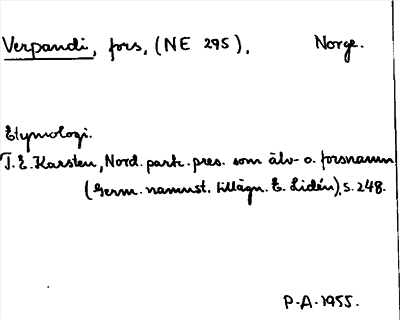 Verpandi, fors, (NE 295), Norge.
Etymologi.
T. E. Karsten, Nord. partc. pres. som älv- o. forsnamn
(Germ. namnst. tillägn. E. Lidén), s. 248.
P.A. 1955.